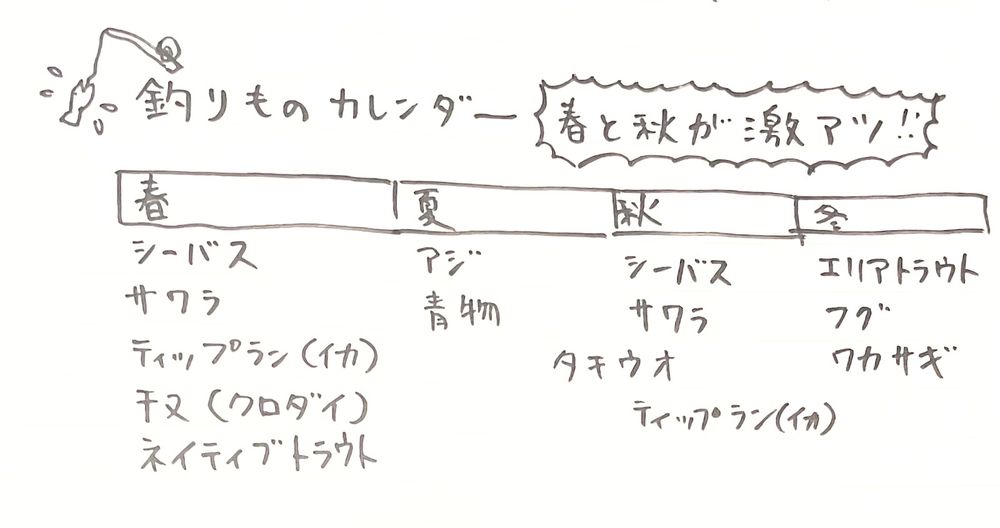 釣りものカレンダー
春と秋が激アツ!!
春 夏 秋 冬
シーバス アジ シーバス エリアトラウト
サワラ 青物 サワラ フグ
ティップラン(イカ) タチウオ ワカサギ
チヌ(クロダイ) ティップラン(イカ)
ネイティブトラウト